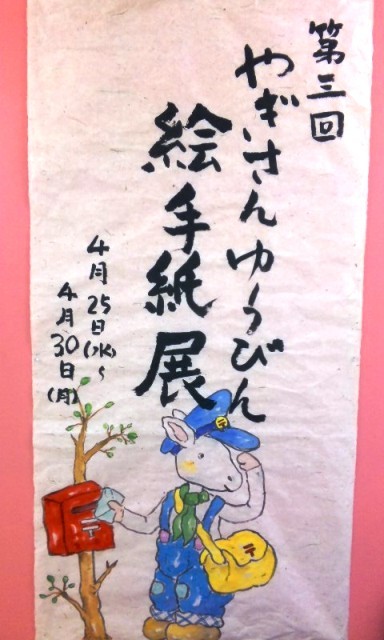 第三回
やぎさんゆうびん
絵手紙展
4月25日(水)~
4月30日(月)